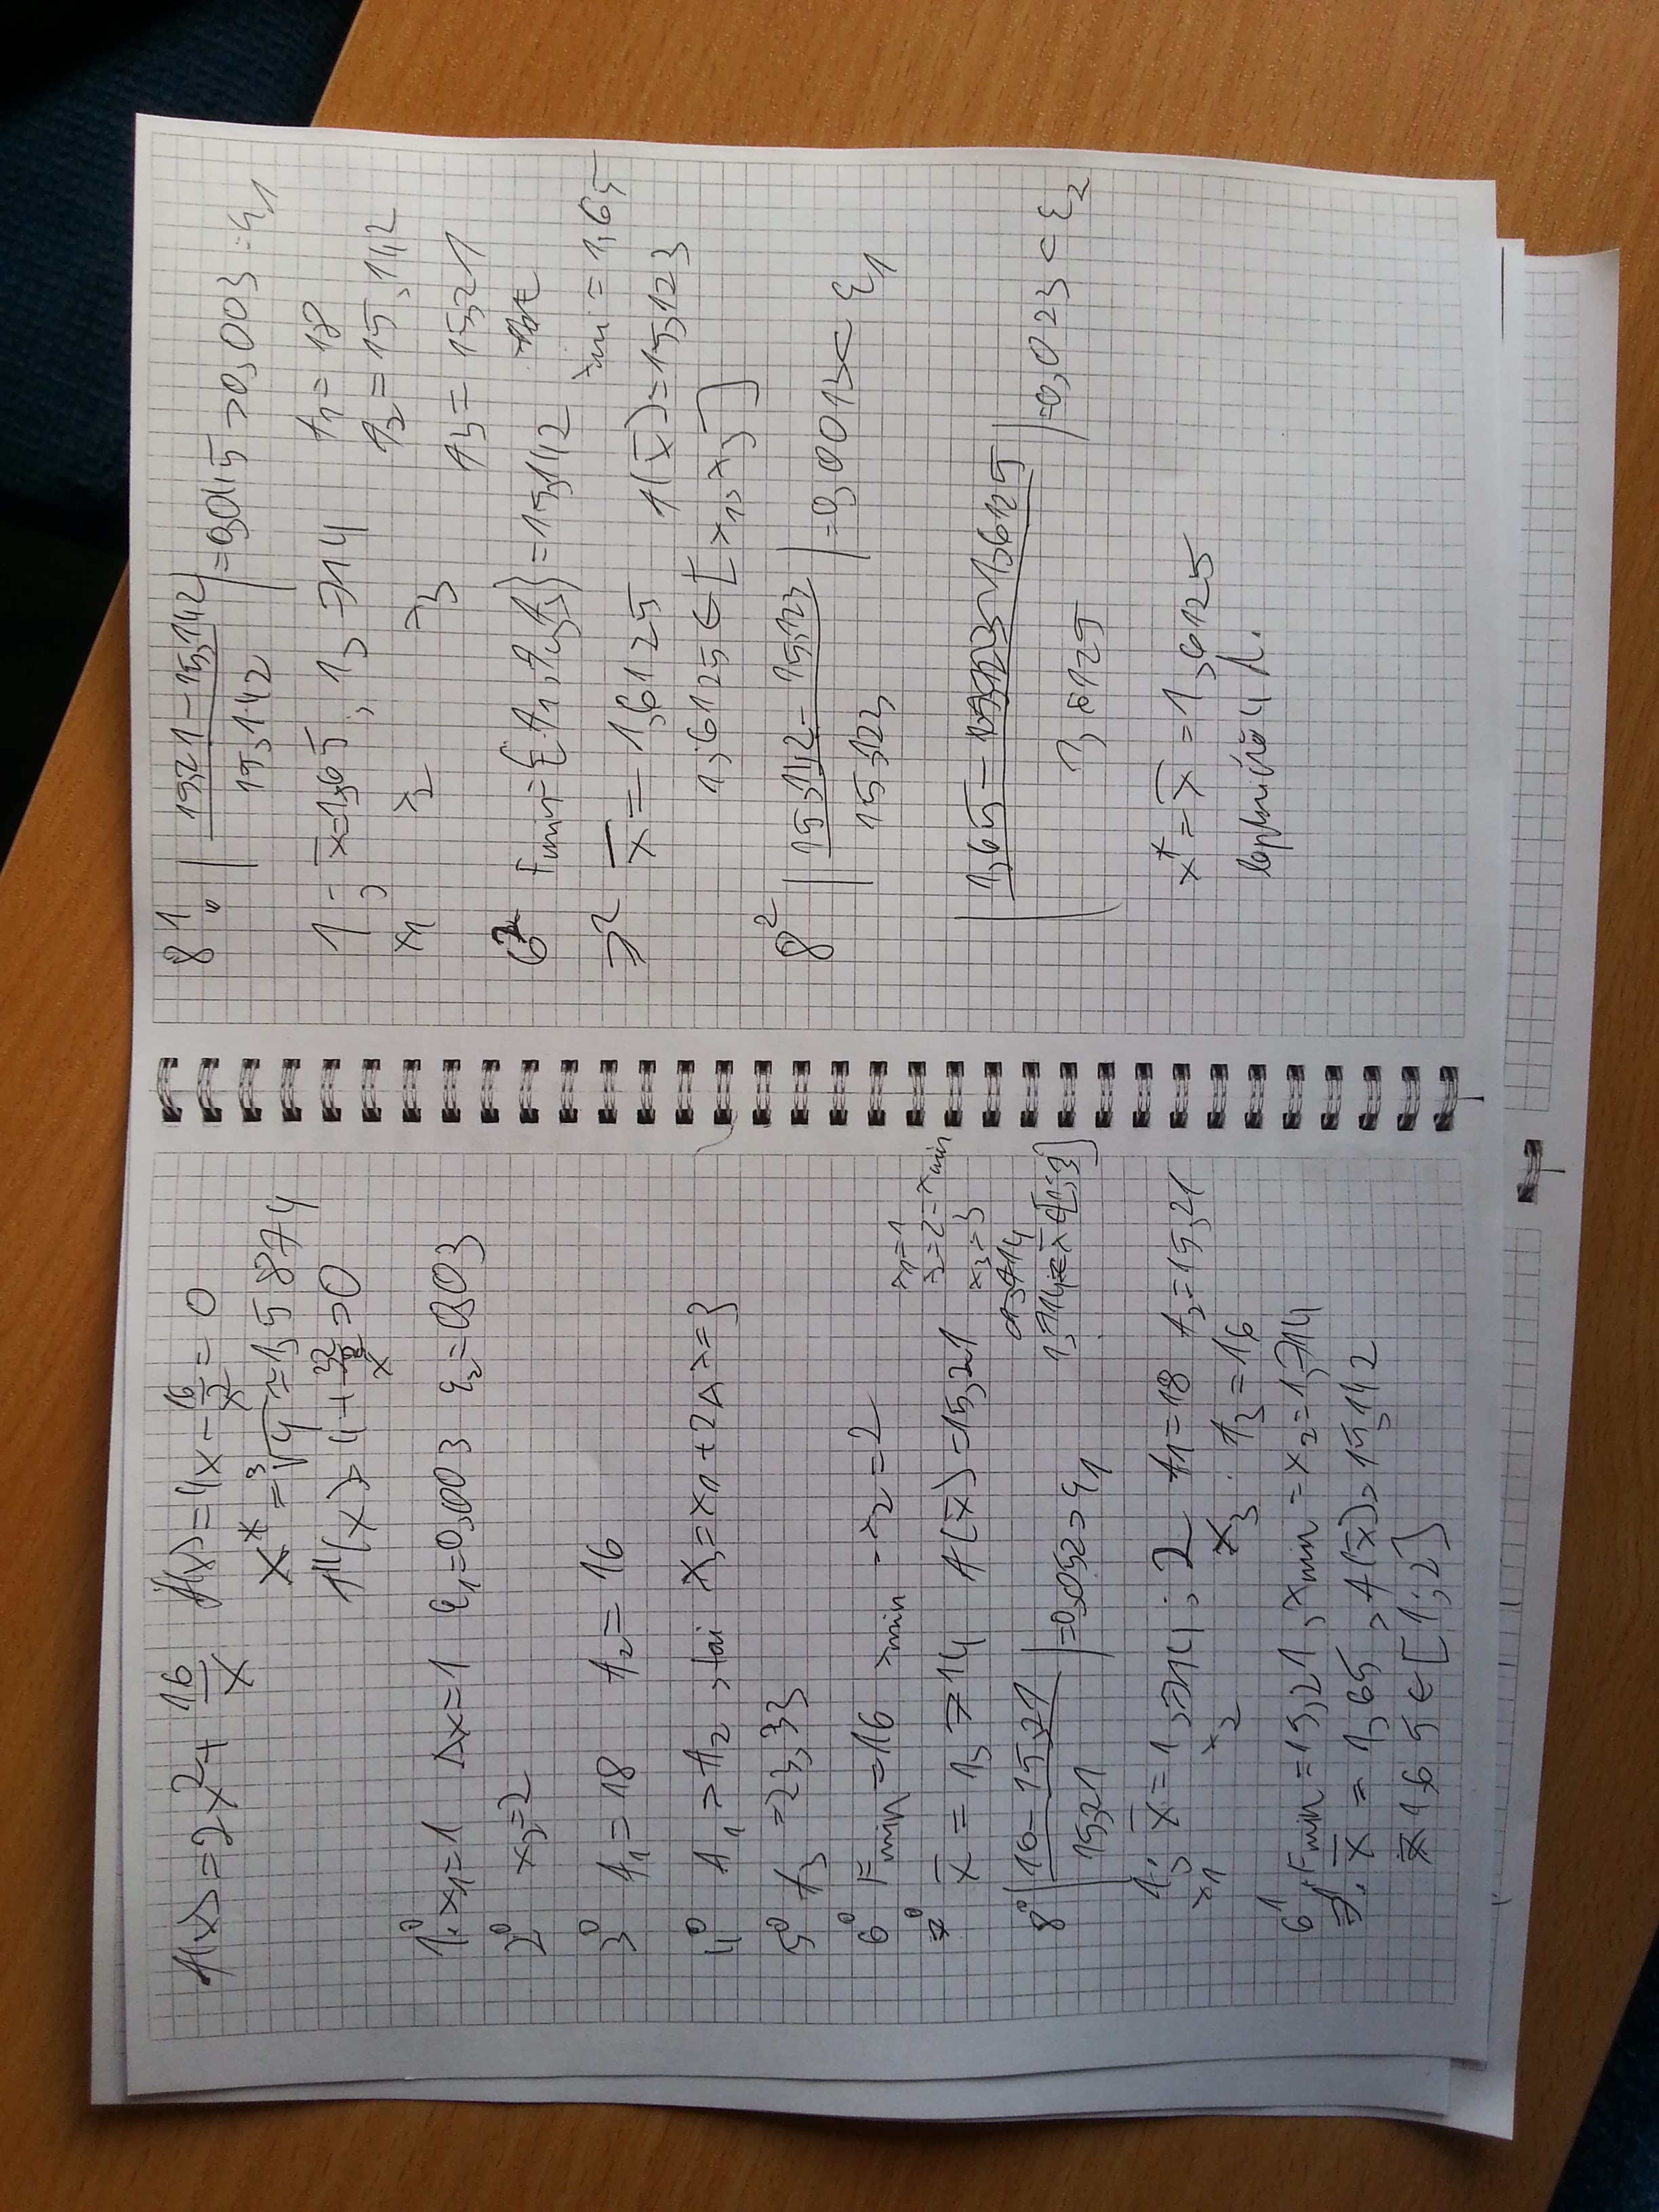 f(x) = 2x² + 16/x   f'(x) = 4x - 16/x² = 0
x* = ∛4 ≈ 1,5874
f''(x) = 4 + 32/x³ > 0
1⁰. x₁=1   Δx=1   ε₁=0,003   ε₂=0,03
2⁰ x₂=2
3⁰ f₁ = 18   f₂ = 16
4⁰ f₁ > f₂, tai x₃ = x₁ + 2Δx = 3
5⁰ f₃ = 23,33
6⁰ Fmin = 16   xmin = x₂ = 2
x₁=1
x₂=2=xmin
x₃=3
7⁰ x̄ = 1,714   f(x̄) = 15,21
1,714 = x̄ ∈ [1;3]
8⁰ |(16 - 15,21)/15,21| = 0,052 > ε₁
1; x̄ = 1,714; 2   f₁ = 18   f₂ = 15,21
x₁   x₂   x₃   f₃ = 16
6¹. Fmin = 15,21, xmin = x₂ = 1,714
7¹. x̄ = 1,65, f(x̄) = 15,142
1,65 ∈ [1;2]
8¹. |(15,21 - 15,142)/15,142| = 0,0045 > 0,003 = ε₁
1; x̄=1,65; 1,714   f₁ = 18
x₁   x₂   x₃   f₂ = 15,142
f₃ = 15,21
6² Fmin = {f₁, f₂, f₃} = 15,142
xmin = 1,65
7² x̄ = 1,6125   f(x̄) = 15,123
1,6125 ∈ [x₁, x₃]
8² |(15,142 - 15,123)/15,123| = 0,0013 < ε₁
|(1,65 - 1,6125)/1,6125| = 0,023 < ε₂
x* = x̄ = 1,6125